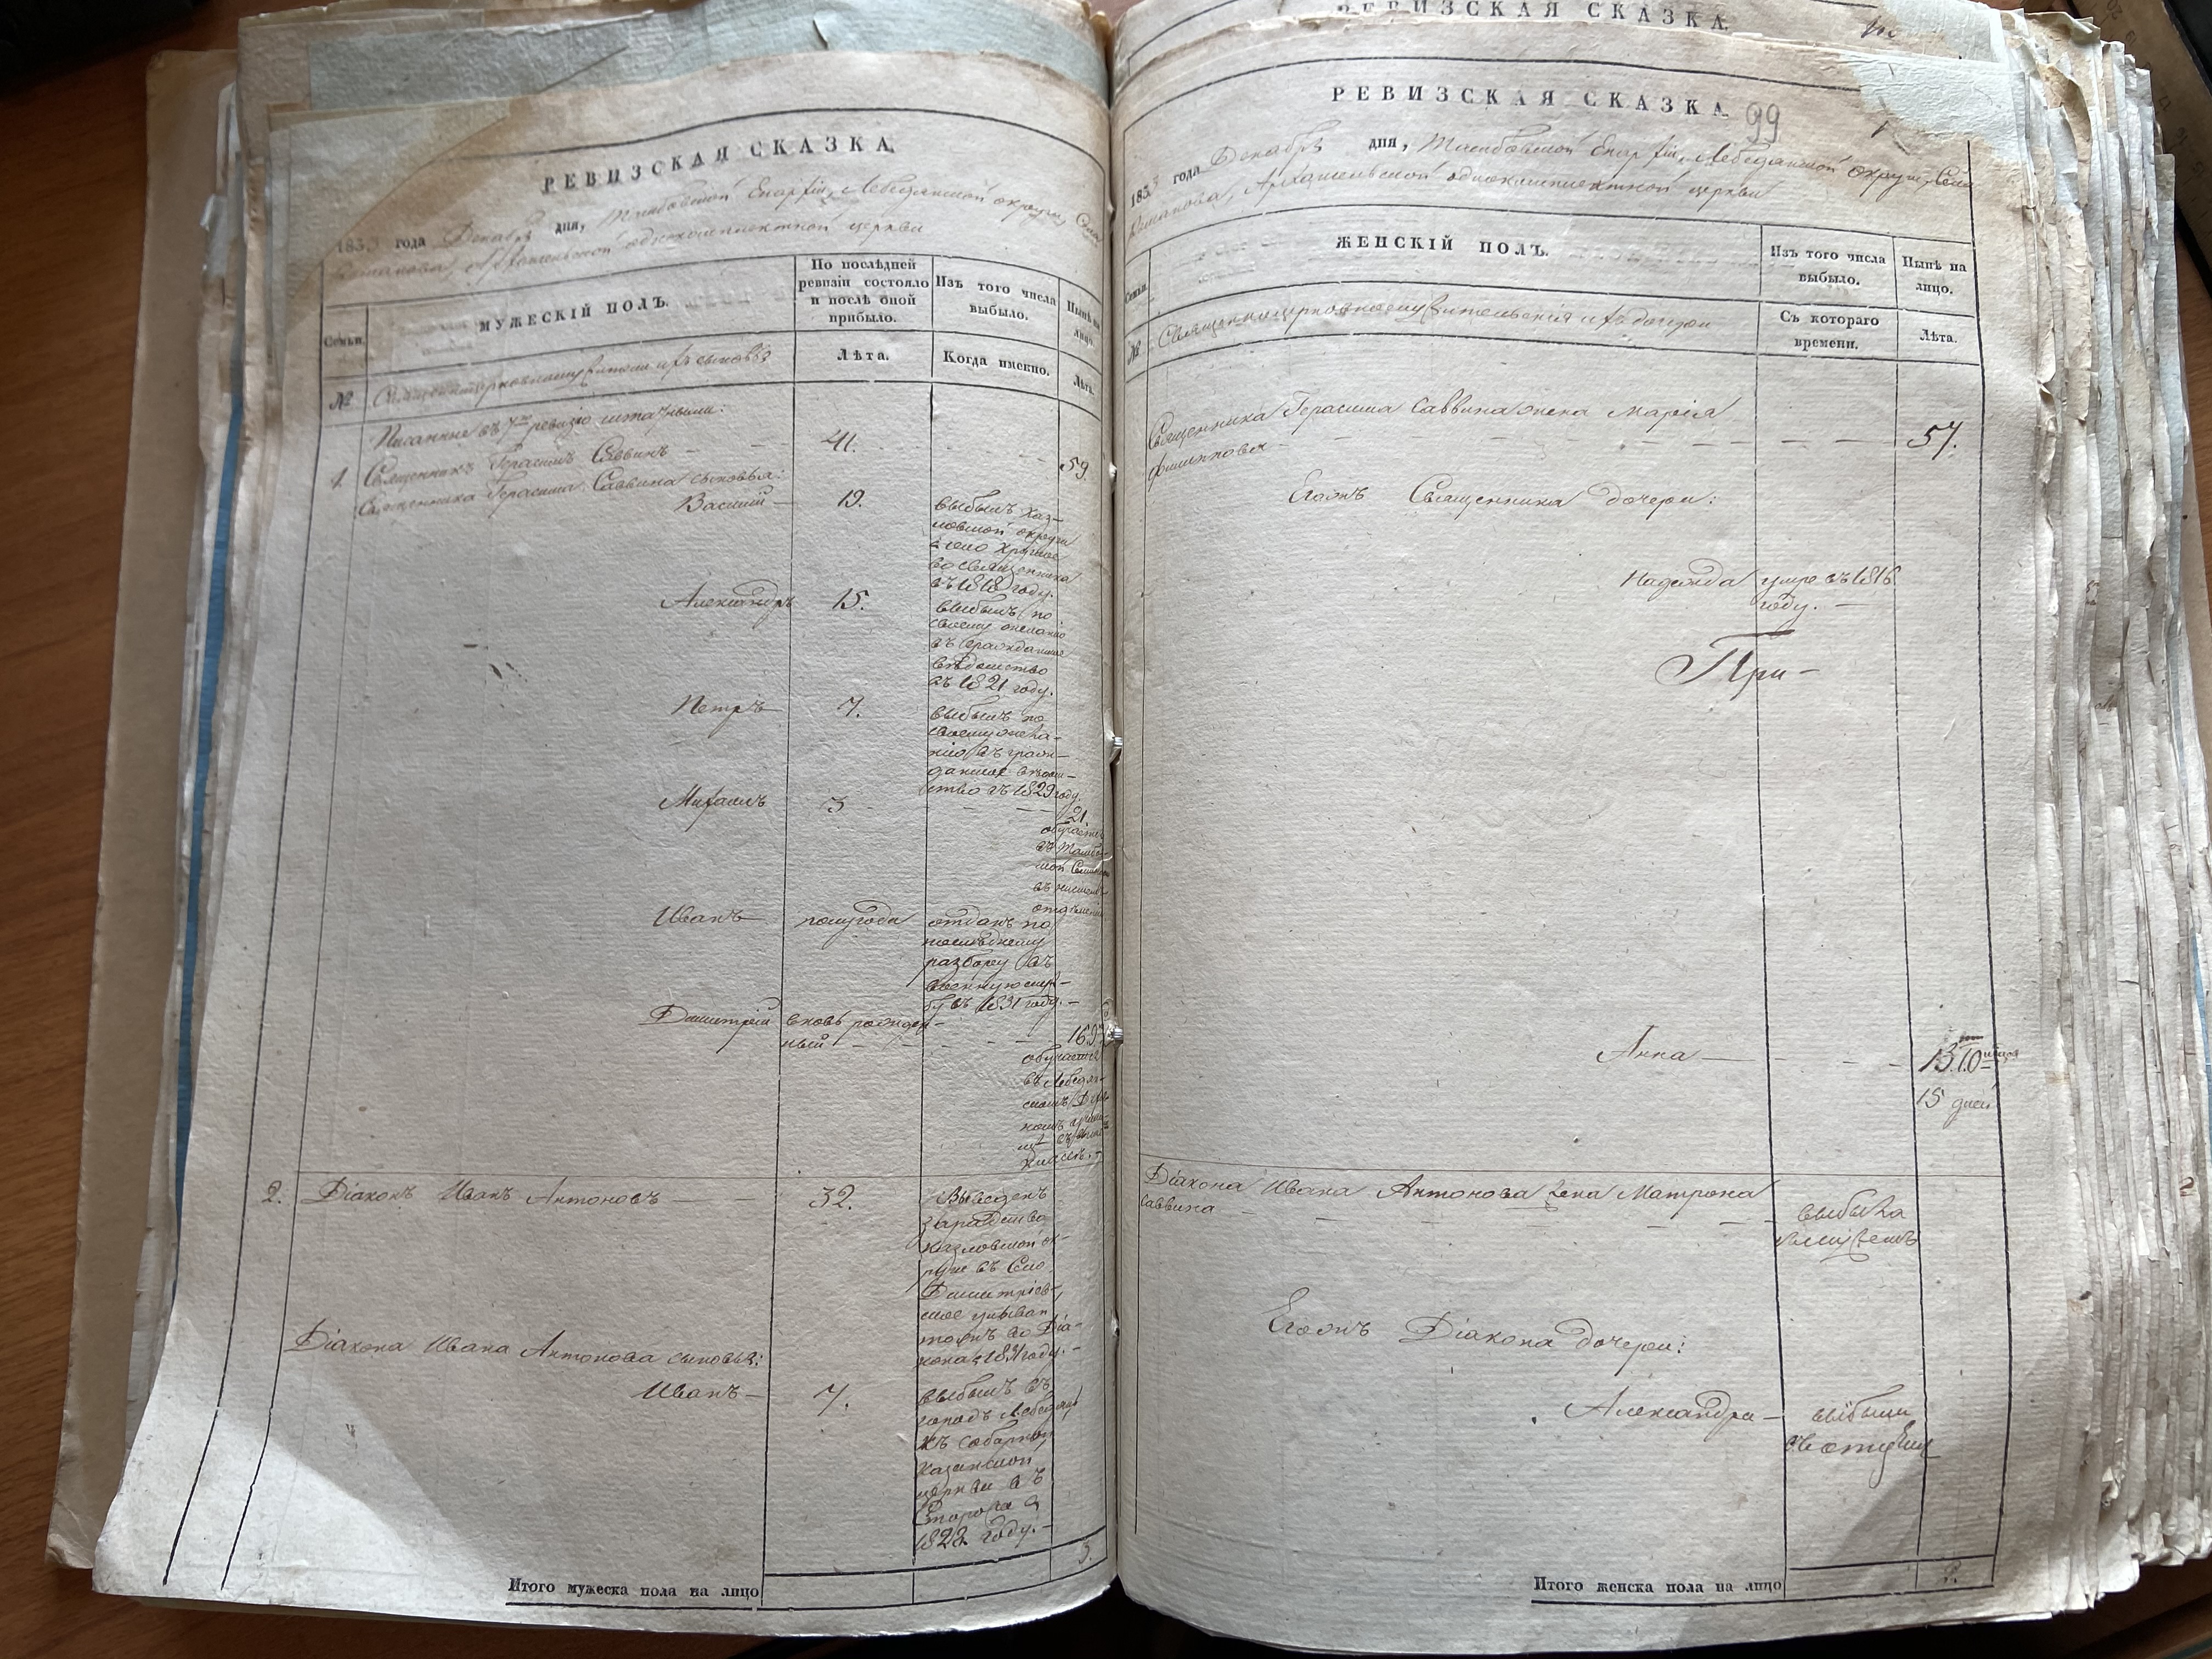 РЕВИЗСКАЯ СКАЗКА.
РЕВИЗСКАЯ СКАЗКА.
1833 года Декабря дня, Тамбовской Епархіи, Лебедянской округи, Села
Архангельской однокомплектной церкви
Семьи.
МУЖЕСКІЙ ПОЛЪ.
По послѣдней ревизіи состояло и послѣ оной прибыло.
Изъ того числа выбыло.
Нынѣ на лицо.
№
Священноцерковнослужители и ихъ сыновья
Лѣта.
Когда именно.
Лѣта.
Писанные въ 7ю ревизію штатными:
1. Священникъ Герасимъ Саввинъ — 41. 59.
Священника Герасима Саввина сыновья:
Василий — 19.
выбылъ Коз-
ловской округи
въ село
во священника
въ 1818 году.
Александръ 15.
выбылъ по
своему желанію
въ Гражданское
вѣдомство
въ 1821 году.
Петръ 7.
выбылъ по
своему жела-
нію въ граж-
данское вѣдом-
ство въ 1829 году.
Михаилъ 3 21.
обучается
въ Тамбов-
ской Семинаріи
въ
отдѣленіи
Иванъ полугода
отданъ по
послѣднему
разбору въ
военную служ-
бу въ 1831 году. —
Димитрій вновь рожден-
ный — 16
обучается
въ Лебедян-
скомъ Духов-
номъ учили-
щѣ въ
классѣ. —
2. Діаконъ Иванъ Антоновъ — 32.
Выведенъ
Козловской ок-
руги въ Село
Димитріев-
ское
во Діа-
кона 1831 году. —
Діакона Ивана Антонова сыновья:
Иванъ — 7.
выбылъ въ
городъ Лебедянь
къ соборной
Казанской
церкви въ
1822 году. —
Итого мужеска пола на лицо 3.
РЕВИЗСКАЯ СКАЗКА. 99
1833 года Декабря дня, Тамбовской Епархіи, Лебедянской округи, Села
Архангельской однокомплектной церкви
Семьи.
ЖЕНСКІЙ ПОЛЪ.
Изъ того числа выбыло.
Нынѣ на лицо.
№
Священноцерковнослужительскія и ихъ дочери
Съ котораго времени.
Лѣта.
Священника Герасима Саввина жена Марія
Филиппова — 57.
Егожъ Священника дочери:
Надежда умре въ 1816
году. —
При-
Анна — 13. 10 мцовъ
15 дней
Діакона Ивана Антонова жена Матрона
Саввина — выбыла
съ мужемъ
Егожъ Діакона дочери:
Александра — выбыли
съ отцемъ
Итого женска пола на лицо 2.